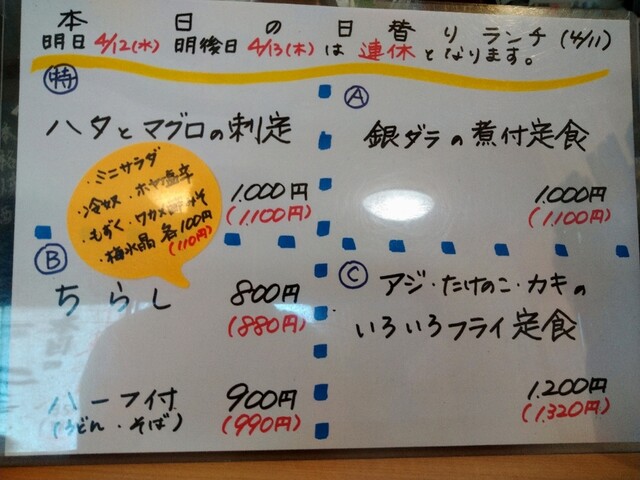 本日の日替りランチ(4/11)
明日4/12(水) 明後日4/13(木)は連休となります。
特
ハタとマグロの刺定
1.000円
(1.100円)
・ミニサラダ
・冷奴・ホヤ塩辛
・もずく・ワカメ酢みそ
・梅水晶 各100円
(110円)
A
銀ダラの煮付定食
1.000円
(1.100円)
B
ちらし 800円
(880円)
ハーフ付 900円
(うどん・そば) (990円)
C
アジ・たけのこ・カキの
いろいろフライ定食
1.200円
(1.320円)